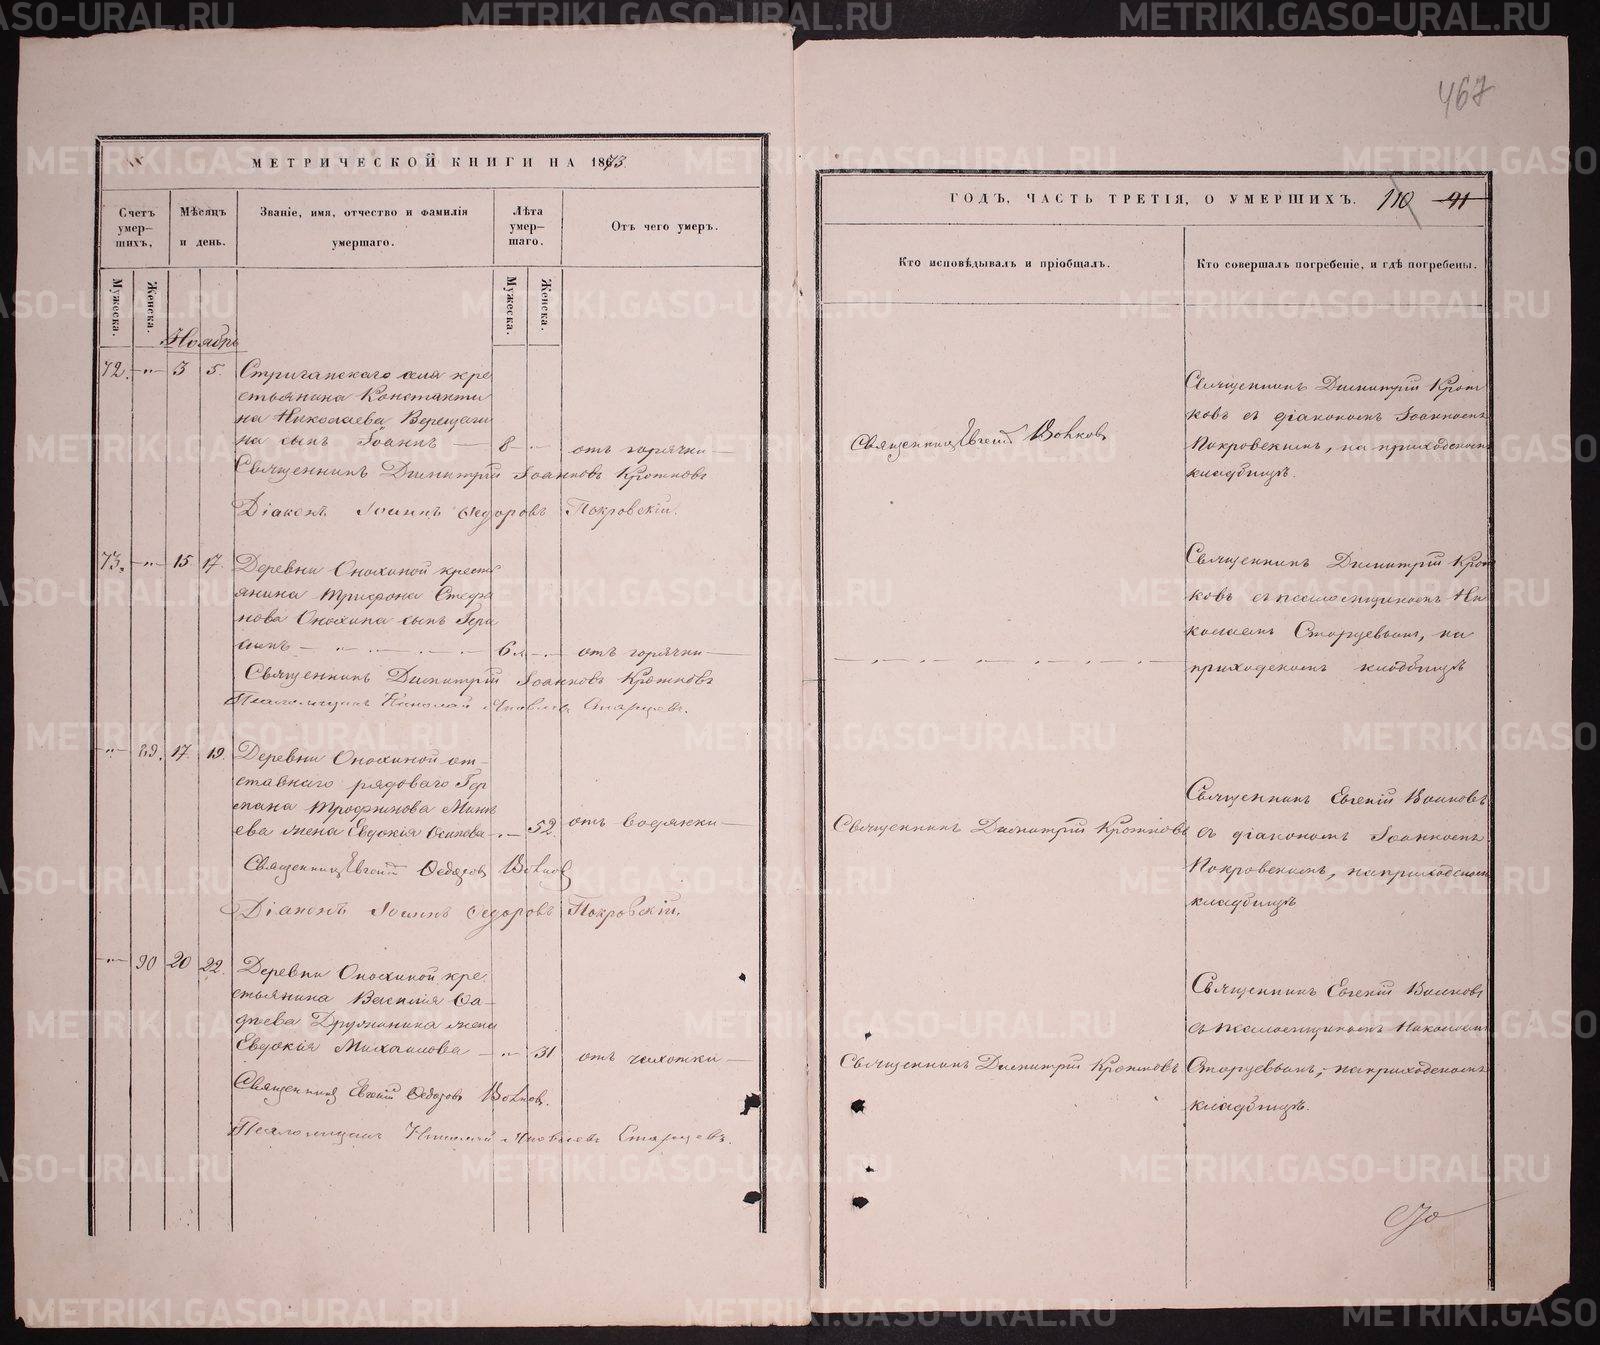 467
МЕТРИЧЕСКОЙ КНИГИ НА 1873.
ГОДЪ, ЧАСТЬ ТРЕТІЯ, О УМЕРШИХЪ. 110 91
Счетъ умер-шихъ,
Мѣсяцъ и день.
Званіе, имя, отчество и фамилія умершаго.
Лѣта умер-шаго.
Отъ чего умеръ.
Кто исповѣдывалъ и пріобщалъ.
Кто совершалъ погребеніе, и гдѣ погребены.
Мужеска.
Женска.
Мужеска.
Женска.
Ноябрь
72. -"- 3 5. Стриганскаго села кре
стьянина Константи
на Николаева Верещаги
на сынъ Іоаннъ — 8 - отъ горячки —
Священникъ Димитрій Іоанновъ Кротковъ
Діаконъ Іоаннъ Ѳедоровъ Покровскій.
Священникъ Евгеній Воиковъ
Священникъ Димитрій Крот
ковъ съ діакономъ Іоанномъ
Покровскимъ, на приходскомъ
кладбищѣ.
73. -"- 15 17. Деревни Онохиной кресть
янина Трифона Стефа
нова Онохина сынъ Гера
симъ — " — " — 6 - отъ горячки —
Священникъ Димитрій Іоанновъ Кротковъ
Псаломщикъ Николай Яковлевъ Старцевъ.
Священникъ Димитрій Крот
ковъ съ псаломщикомъ Ни
колаемъ Старцевымъ, на
приходскомъ кладбищѣ
-"- 89. 17 19. Деревни Онохиной от-
ставнаго рядоваго Гер
мана Трофимова Мине
ева жена Евдокія Осипова - " - 52. отъ водянки —
Священникъ Евгеній Ѳедоров Воиков
Діаконъ Іоаннъ Ѳедоровъ Покровскій.
Священникъ Димитрій Кротковъ
Священникъ Евгеній Воиковъ
съ діакономъ Іоанномъ
Покровскимъ, на приходскомъ
кладбищѣ
-"- 90 20 22. Деревни Онохиной кре
стьянина Василія
Дружинина жена
Евдокія Михаилова — " - 31 отъ чахотки —
Священникъ Евгеній Ѳедоровъ Воиков.
Псаломщикъ Николай Яковлевъ Старцевъ.
Священникъ Димитрій Кротковъ
Священникъ Евгеній Воиковъ
съ псаломщикомъ Николаемъ
Старцевымъ, на приходскомъ
кладбищѣ.
METRIKI.GASO-URAL.RU